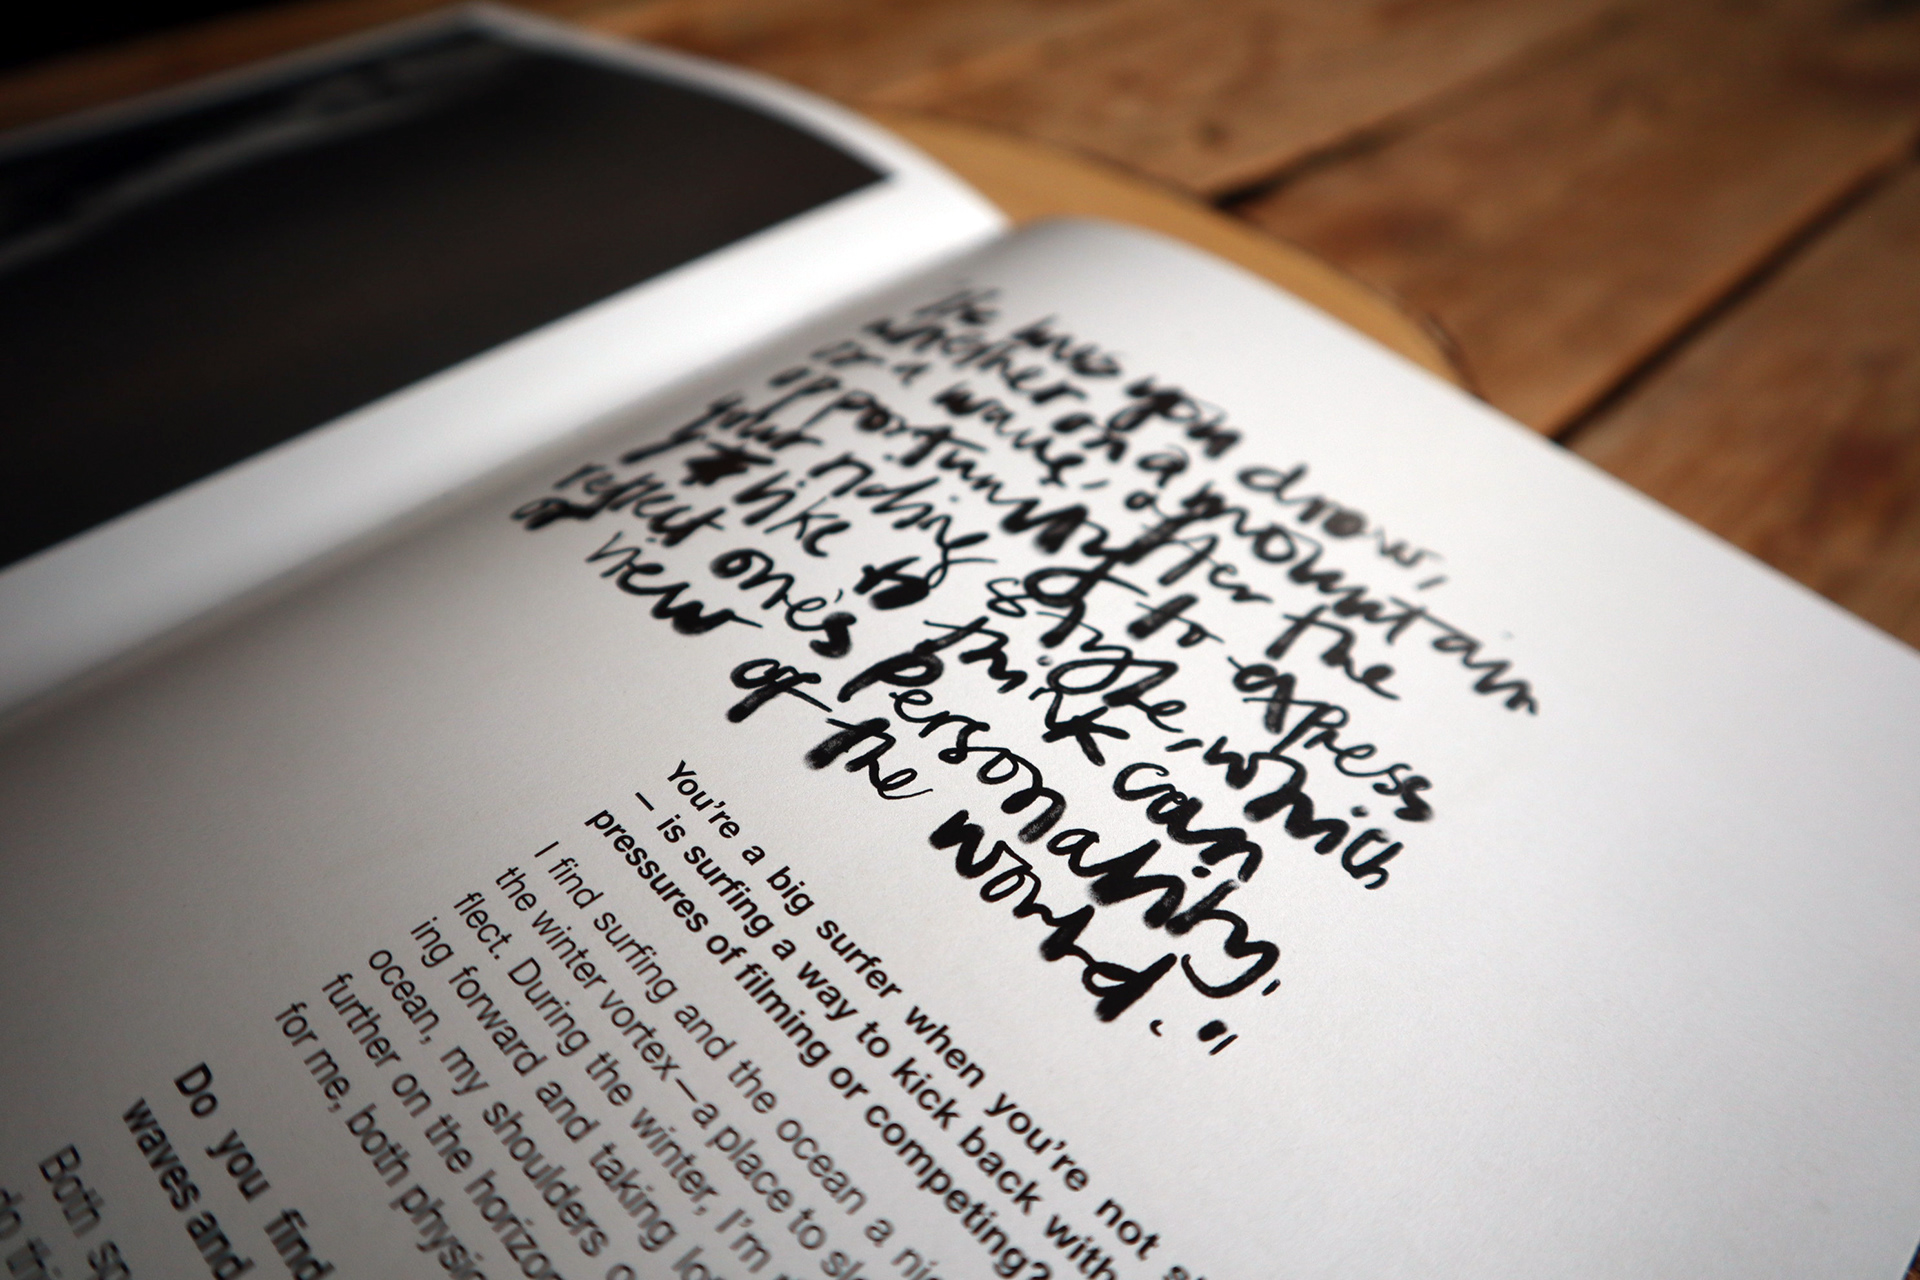 "The lines you draw,
whether on a mountain
or a wave, offer the
opportunity to express
your riding style, which
I like to think can
reflect one's personality,
or view of the world."
You're a big surfer when you're not
– is surfing a way to kick back with
pressures of filming or competing?
I find surfing and the ocean a
the winter vortex—a place to
flect. During the winter, I'm
ing forward and taking
ocean, my shoulders
further on the
for me, both
Do you find
waves and
Both